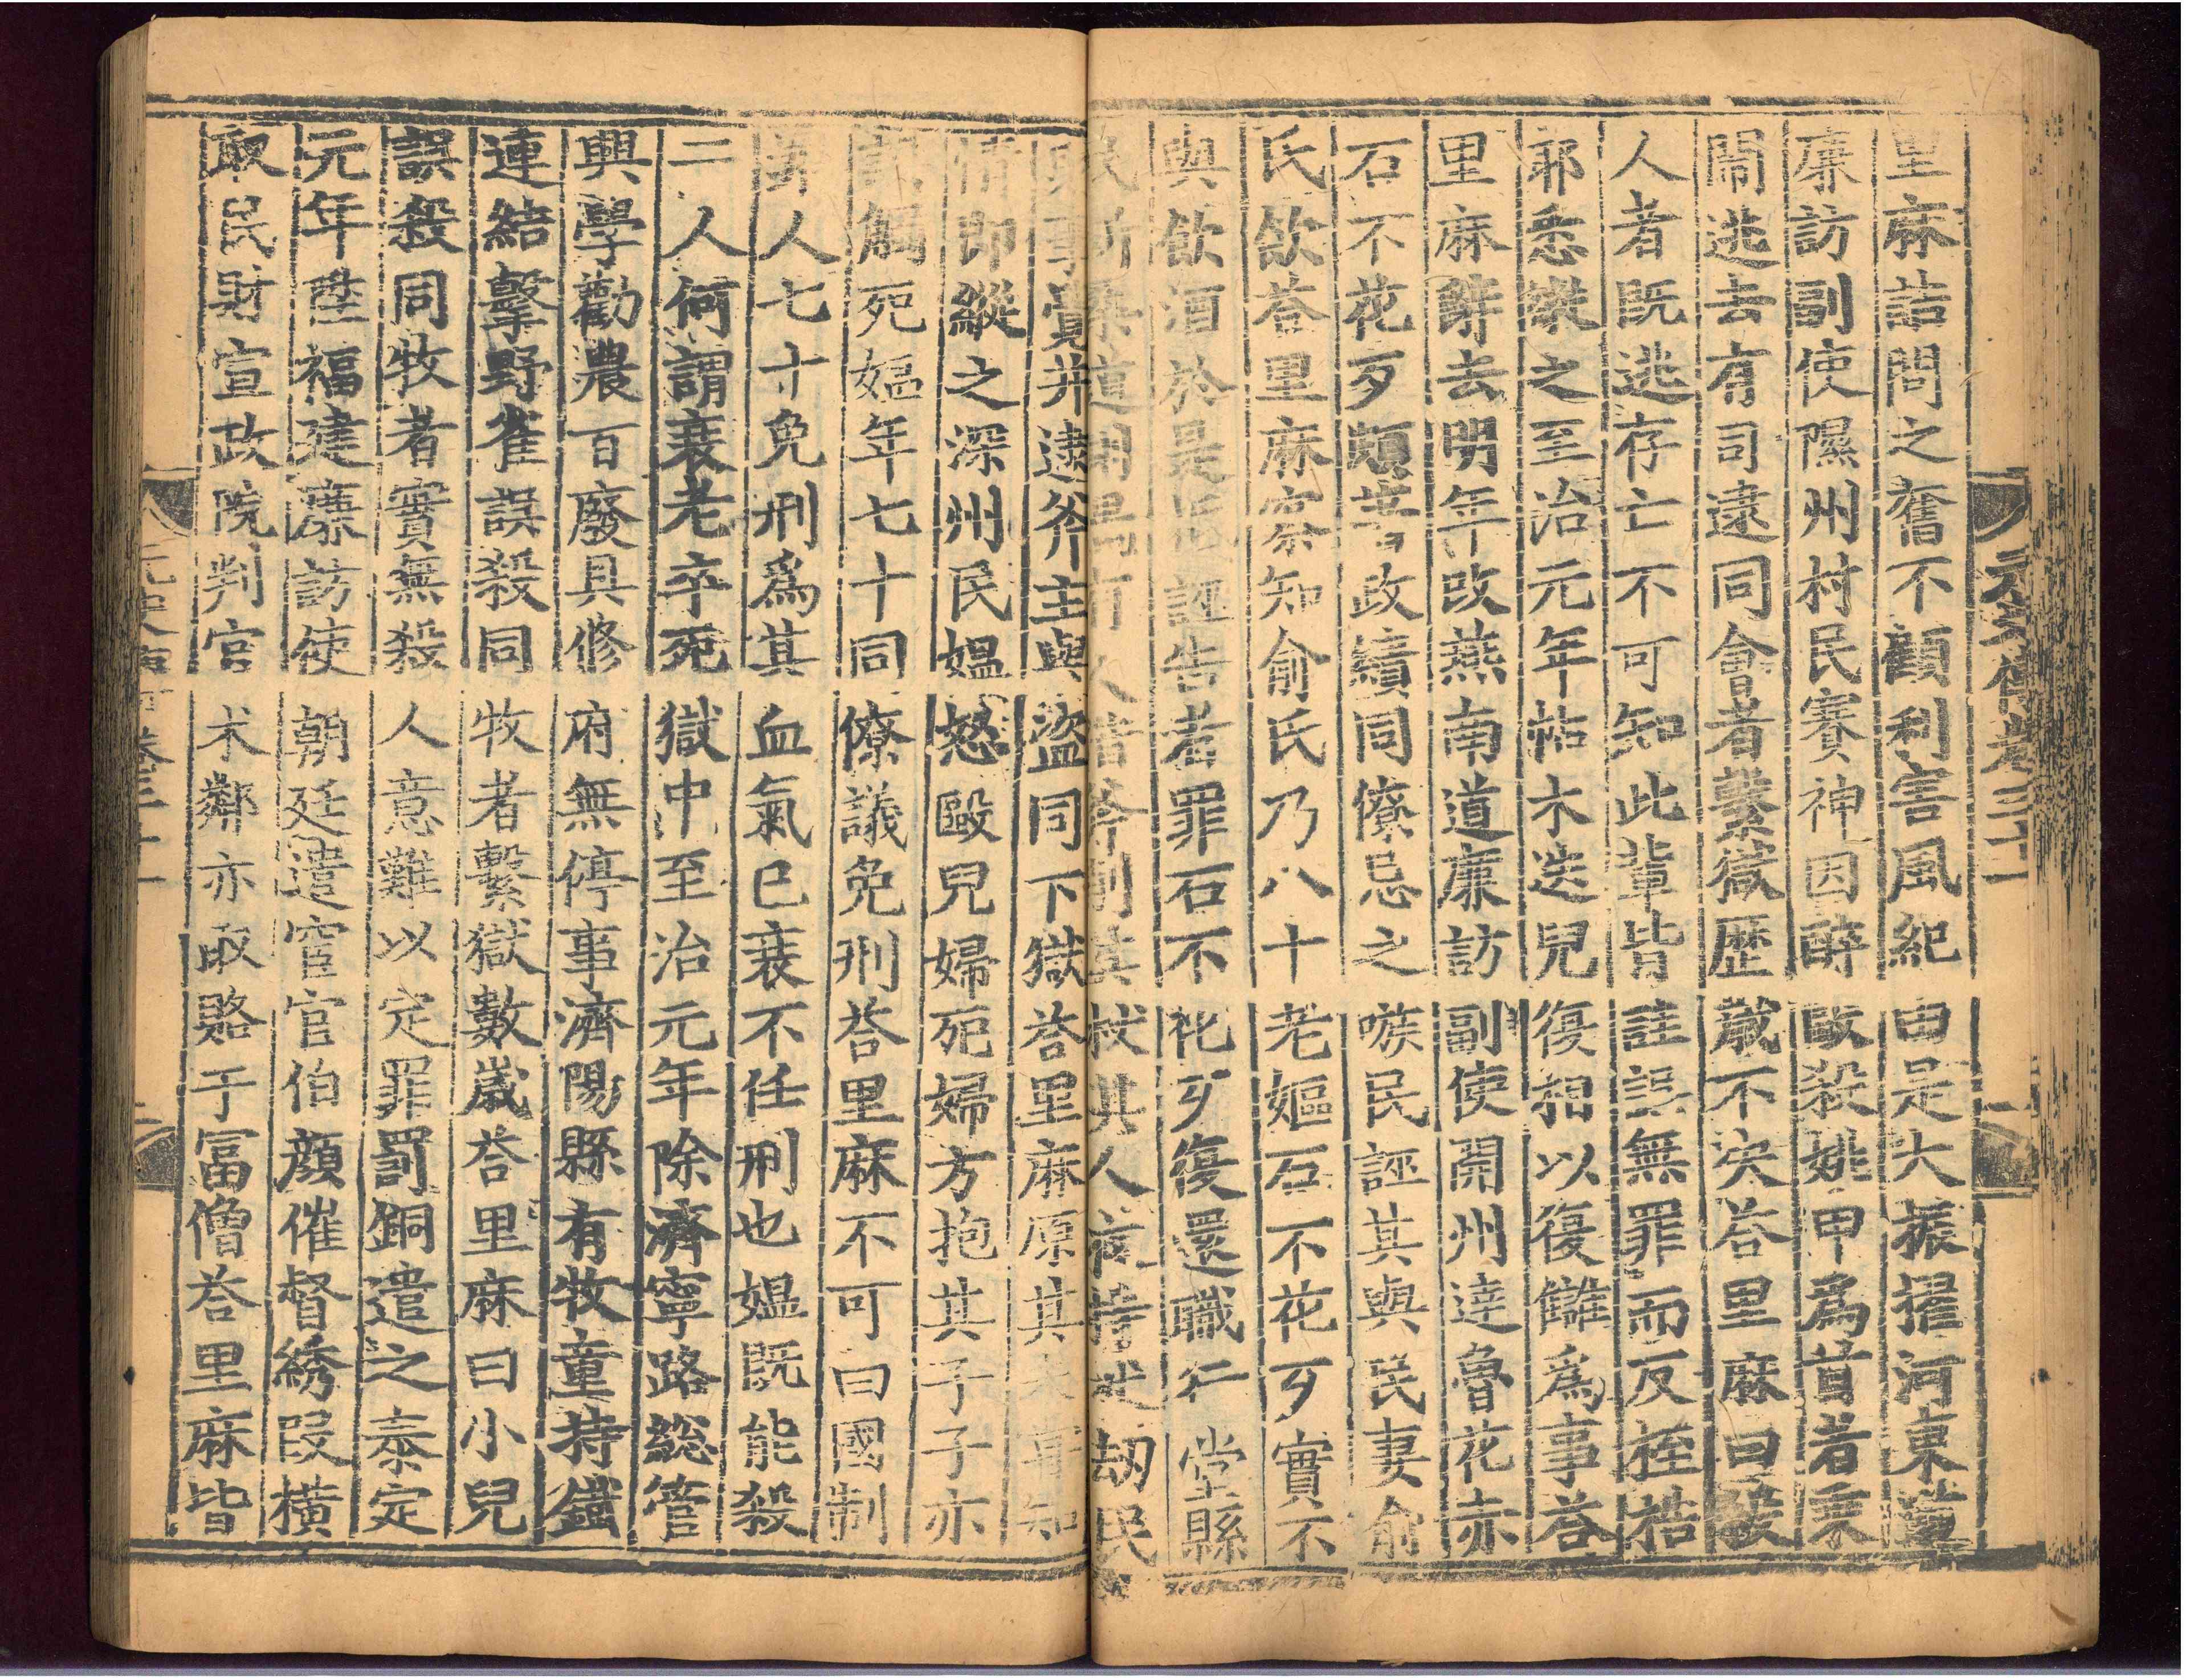 元史傳卷三十一
里麻詰問之奮不顧利害風紀由是大振擢河東道
廉訪副使隰州村民賽神因醉毆殺姚甲爲首者乘
鬧逃去有司逮同會者繫獄歷歲不决荅里麻曰殺
人者既逃存亡不可知此輩皆詿誤無罪而反桎梏
耶悉縱之至治元年帖木迭兒復相以復讎爲事荅
里麻辭去明年改燕南道廉訪副使開州達魯花赤
石不花歹頗著政績同僚忌之嗾民誣其與民妻俞
氏飲荅里麻察知俞氏乃八十老嫗石不花歹實不
與飲酒於是抵誣告者罪石不花歹復還職行堂縣
民斫桑道側有人借斧削其杖其人夜持杖劫民
事覺并逮斧主與盜同下獄荅里麻原其未嘗知
情即縱之深州民媼怒毆兒婦死婦方抱其子子亦
誤觸死嫗年七十同僚議免刑荅里麻不可曰國制
罪人七十免刑爲其血氣已衰不任刑也媼既能殺
二人何謂衰老卒死獄中至治元年除濟寧路總管
興學勸農百廢具修府無停事濟陽縣有牧童持鐵
連結擊野雀誤殺同牧者繫獄數歲荅里麻曰小兒
誤殺同牧者實無殺人意難以定罪罰銅遣之泰定
元年陞福建廉訪使朝廷遣宦官伯顏催督綉段橫
取民財宣政院判官朮鄰亦取賂于富僧荅里麻皆